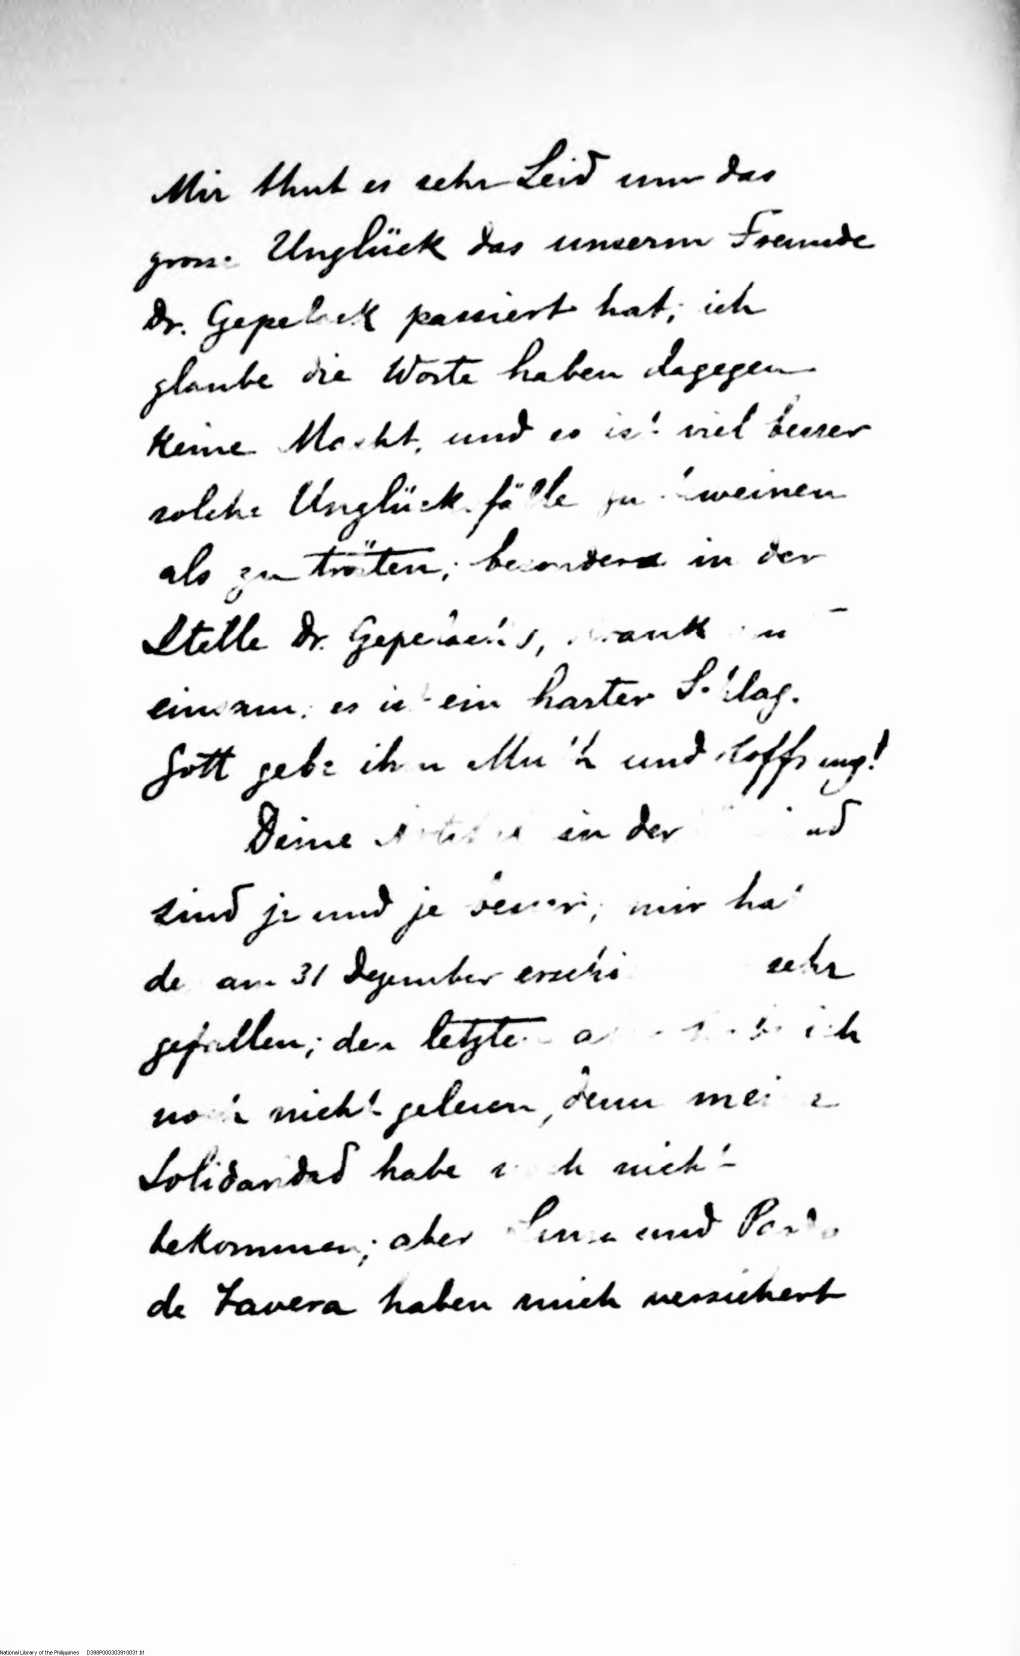 Mir thut es sehr Leid um das
grosse Unglück das unserm Freunde
Dr. Czepelack passiert hat; ich
glaube die Worte haben dagegen
keine Macht, und es ist viel besser
solche Unglücksfälle zu beweinen
als zu trösten; besonders in der
Stelle Dr. Czepelack's, krank und
einsam; es ist ein harter Schlag.
Gott gebe ihm Muth und Hoffnung!
Deine Artikel in der
sind je und je besser; mir hat
de am 31 Dezember sehr
gefallen; den letzten ich
noch nicht gelesen, denn meine
Solidaridad habe noch nicht
bekommen; aber Luna und Pardo
de Tavera haben mich versichert
National Library of the Philippines